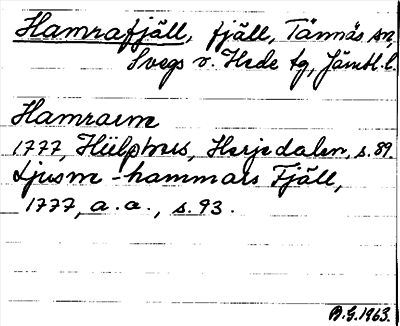 Hamrafjäll, fjäll, Tännäs sn,
Svegs o. Hede tg, Jämtl. l.
Hamrarne
1777, Hülphers, Herjedalen, s. 89.
Ljusne-hammars Fjäll,
1777, a.a., s. 93.
B.G. 1963.